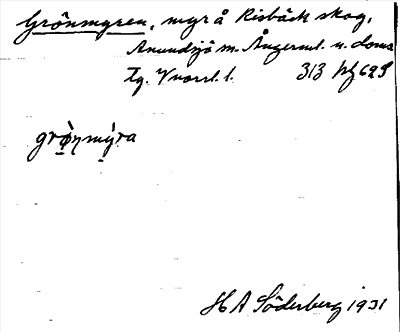 Grönmyren, myr å Risbäck skog,
Anundsjö sn. Ångerml. n. Loms
tg. Vnorrl. l. 313 hg 698
grø̀nmýra
H A Söderberg 1931